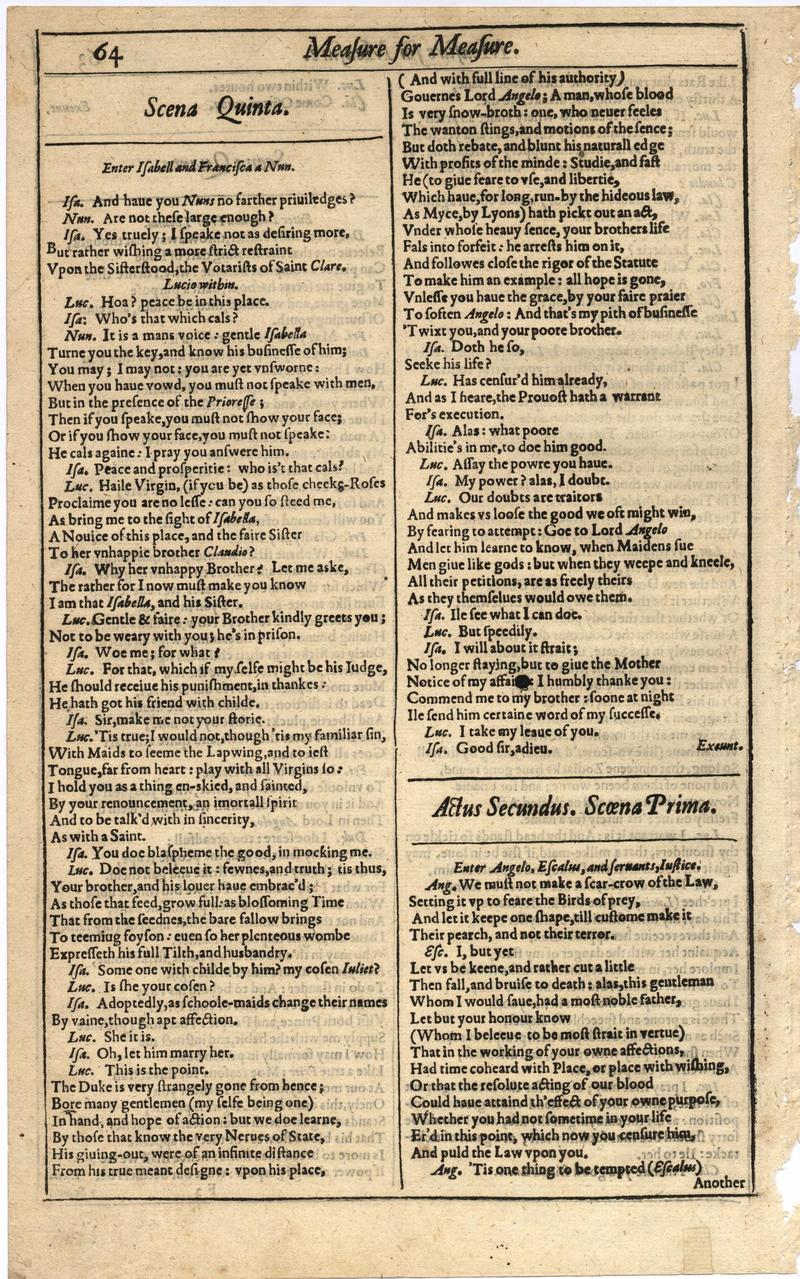 64
Meaſure for Meaſure.
Scena Quinta.
Enter Iſabell and Franciſca a Nun.
Iſa. And haue you Nuns no farther priuiledges?
Nun. Are not theſe large enough?
Iſa. Yes truely; I ſpeake not as deſiring more,
But rather wiſhing a more ſtrict reſtraint
Vpon the Siſterſtood, the Votariſts of Saint Clare.
Lucio within.
Luc. Hoa? peace be in this place.
Iſa: Who's that which cals?
Nun. It is a mans voice: gentle Iſabella
Turne you the key, and know his buſineſſe of him;
You may; I may not: you are yet vnſworne:
When you haue vowd, you muſt not ſpeake with men,
But in the preſence of the Prioreſſe;
Then if you ſpeake, you muſt not ſhow your face;
Or if you ſhow your face, you muſt not ſpeake:
He cals againe: I pray you anſwere him.
Iſa. Peace and proſperitie: who is't that cals?
Luc. Haile Virgin, (if you be) as thoſe cheeke-Roſes
Proclaime you are no leſſe: can you ſo ſteed me,
As bring me to the ſight of Iſabella,
A Nouice of this place, and the faire Siſter
To her vnhappie brother Claudio?
Iſa. Why her vnhappy Brother? Let me aske,
The rather for I now muſt make you know
I am that Iſabella, and his Siſter.
Luc. Gentle & faire: your Brother kindly greets you;
Not to be weary with you; he's in priſon.
Iſa. Woe me; for what?
Luc. For that, which if my ſelfe might be his Iudge,
He ſhould receiue his puniſhment, in thankes:
He hath got his friend with childe.
Iſa. Sir, make me not your ſtorie.
Luc. 'Tis true; I would not, though 'tis my familiar ſin,
With Maids to ſeeme the Lapwing, and to ieſt
Tongue, far from heart: play with all Virgins ſo:
I hold you as a thing en-skied, and ſainted,
By your renouncement, an imortall ſpirit
And to be talk'd with in ſincerity,
As with a Saint.
Iſa. You doe blaſpheme the good, in mocking me.
Luc. Doe not beleeue it: fewnes, and truth; tis thus,
Your brother, and his louer haue embrac'd;
As thoſe that feed, grow full: as bloſſoming Time
That from the ſeednes, the bare fallow brings
To teeming foyſon: euen ſo her plenteous wombe
Expreſſeth his full Tilth, and husbandry.
Iſa. Some one with childe by him? my coſen Iuliet?
Luc. Is ſhe your coſen?
Iſa. Adoptedly, as ſchoole-maids change their names
By vaine, though apt affection.
Luc. She it is.
Iſa. Oh, let him marry her.
Luc. This is the point.
The Duke is very ſtrangely gone from hence;
Bore many gentlemen (my ſelfe being one)
In hand, and hope of action: but we doe learne,
By thoſe that know the very Nerues of State,
His giuing-out, were of an infinite diſtance
From his true meant deſigne: vpon his place,
(And with full line of his authority)
Gouernes Lord Angelo; A man, whoſe blood
Is very ſnow-broth: one, who neuer feeles
The wanton ſtings, and motions of the ſence;
But doth rebate, and blunt his naturall edge
With profits of the minde: Studie, and faſt
He (to giue feare to vſe, and libertie,
Which haue, for long, run-by the hideous law,
As Myce, by Lyons) hath pickt out an act,
Vnder whoſe heauy ſence, your brothers life
Fals into forfeit: he arreſts him on it,
And followes cloſe the rigor of the Statute
To make him an example: all hope is gone,
Vnleſſe you haue the grace, by your faire praier
To ſoften Angelo: And that's my pith of buſineſſe
'Twixt you, and your poore brother.
Iſa. Doth he ſo,
Seeke his life?
Luc. Has cenſur'd him already,
And as I heare, the Prouoſt hath a warrant
For's execution.
Iſa. Alas: what poore
Abilitie's in me, to doe him good.
Luc. Aſſay the powre you haue.
Iſa. My power? alas, I doubt.
Luc. Our doubts are traitors
And makes vs looſe the good we oft might win,
By fearing to attempt: Goe to Lord Angelo
And let him learne to know, when Maidens ſue
Men giue like gods: but when they weepe and kneele,
All their petitions, are as freely theirs
As they themſelues would owe them.
Iſa. Ile ſee what I can doe.
Luc. But ſpeedily.
Iſa. I will about it ſtrait;
No longer ſtaying, but to giue the Mother
Notice of my I humbly thanke you:
Commend me to my brother: ſoone at night
Ile ſend him certaine word of my ſucceſſe.
Luc. I take my leaue of you.
Iſa. Good ſir, adieu. Exeunt.
Actus Secundus. Scœna Prima.
Enter Angelo, Eſcalus, and ſeruants, Iuſtice.
Ang. We muſt not make a ſcar-crow of the Law,
Setting it vp to feare the Birds of prey,
And let it keepe one ſhape, till cuſtome make it
Their pearch, and not their terror.
Eſc. I, but yet
Let vs be keene, and rather cut a little
Then fall, and bruiſe to death: alas, this gentleman
Whom I would ſaue, had a moſt noble father,
Let but your honour know
(Whom I beleeue to be moſt ſtrait in vertue)
That in the working of your owne affections,
Had time coheard with Place, or place with wiſhing,
Or that the reſolute acting of our blood
Could haue attaind th'effect of your owne purpoſe,
Whether you had not ſometime in your life
Er'd in this point, which now you cenſure him,
And puld the Law vpon you.
Ang. 'Tis one thing to be tempted (Eſcalus)
Another